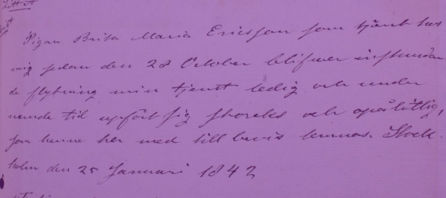 Pigan Brita Maria Ericsson som tjent hos
mig sedan den 28 October blifwer instundan
de flyttning min tjenst ledig och under
nämde tid upfört sig och
som henne här med till bewis lemnas. Stock-
holm den 25 Januari 1842